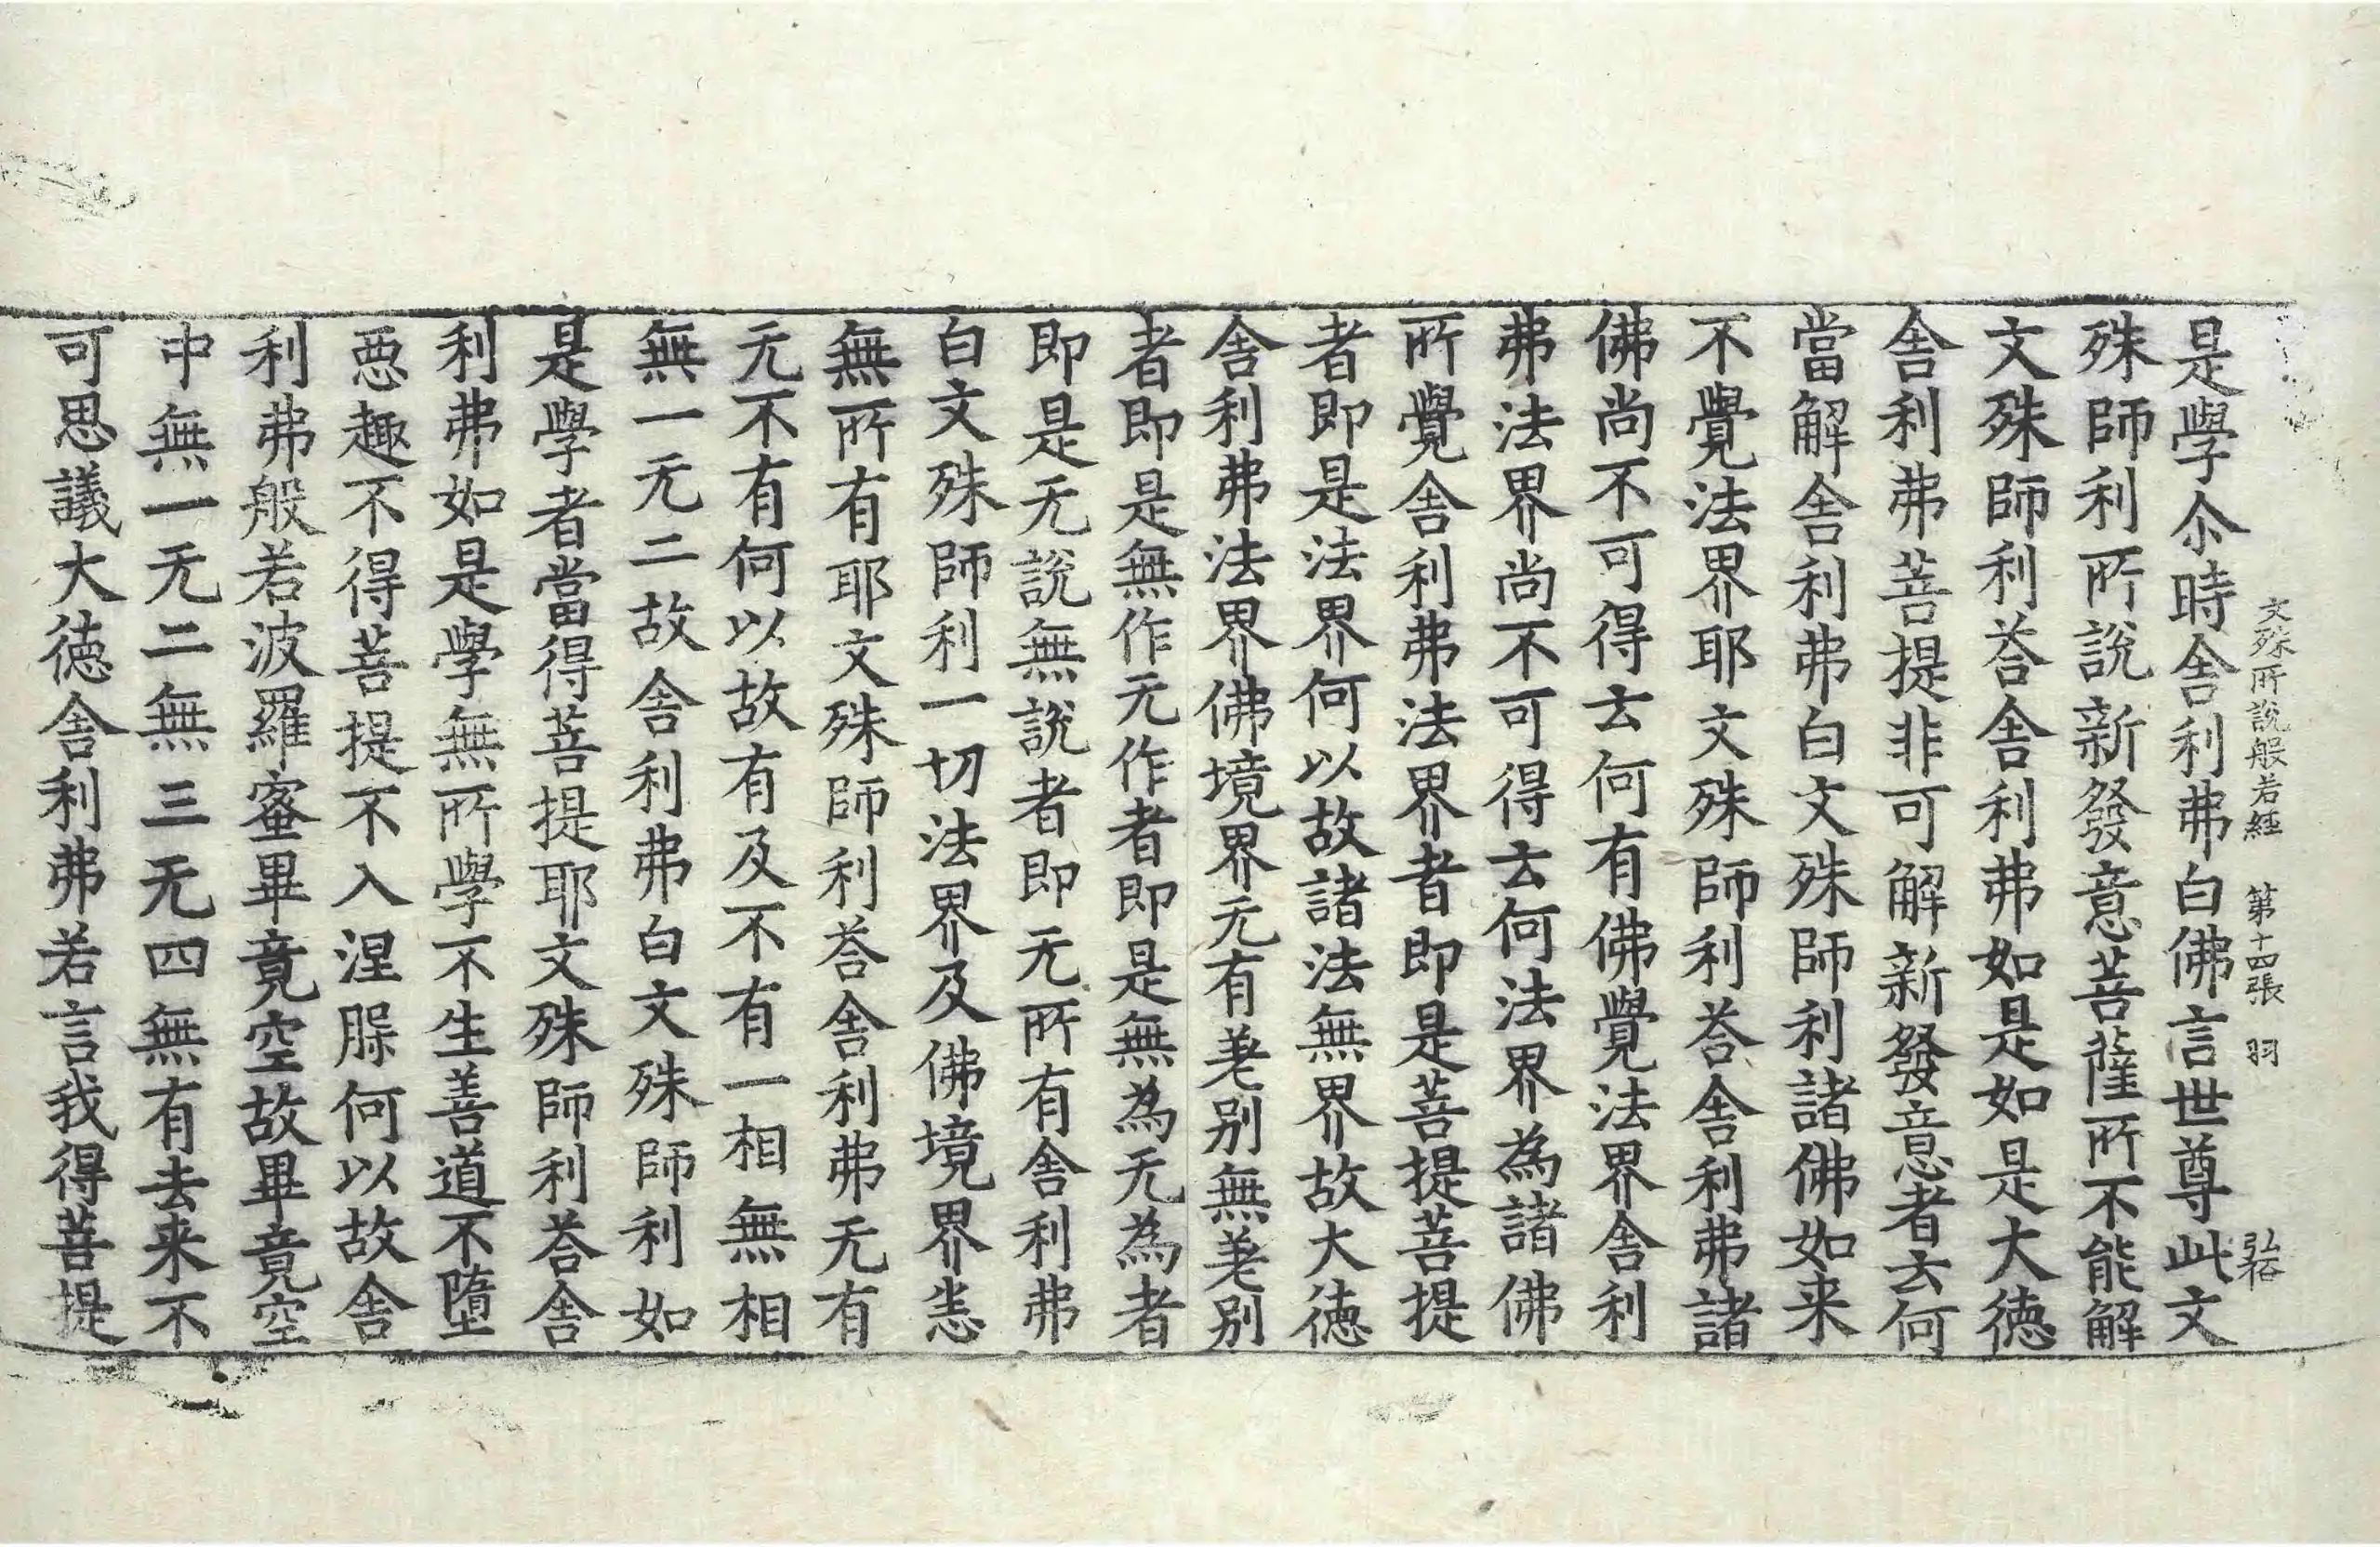 文殊所說般若經　第十四張　羽　弘裕
是學尒時舍利弗白佛言世尊此文
殊師利所說新發意菩薩所不能解
文殊師利荅舍利弗如是如是大徳
舍利弗菩提非可解新發意者去何
當解舍利弗白文殊師利諸佛如来
不覺法界耶文殊師利荅舍利弗諸
佛尚不可得去何有佛覺法界舍利
弗法界尚不可得去何法界為諸佛
所覺舍利弗法界者即是菩提菩提
者即是法界何以故諸法無界故大徳
舍利弗法界佛境界无有差别無差别
者即是無作无作者即是無為无為者
即是无說無說者即无所有舍利弗
白文殊師利一切法界及佛境界恙
無所有耶文殊師利荅舍利弗无有
无不有何以故有及不有一相無相
無一无二故舍利弗白文殊師利如
是學者當得菩提耶文殊師利荅舍
利弗如是學無所學不生善道不墮
惡趣不得菩提不入涅脲何以故舍
利弗般若波羅蜜畢竟空故畢竟空
中無一无二無三无四無有去来不
可思議大徳舍利弗若言我得菩提